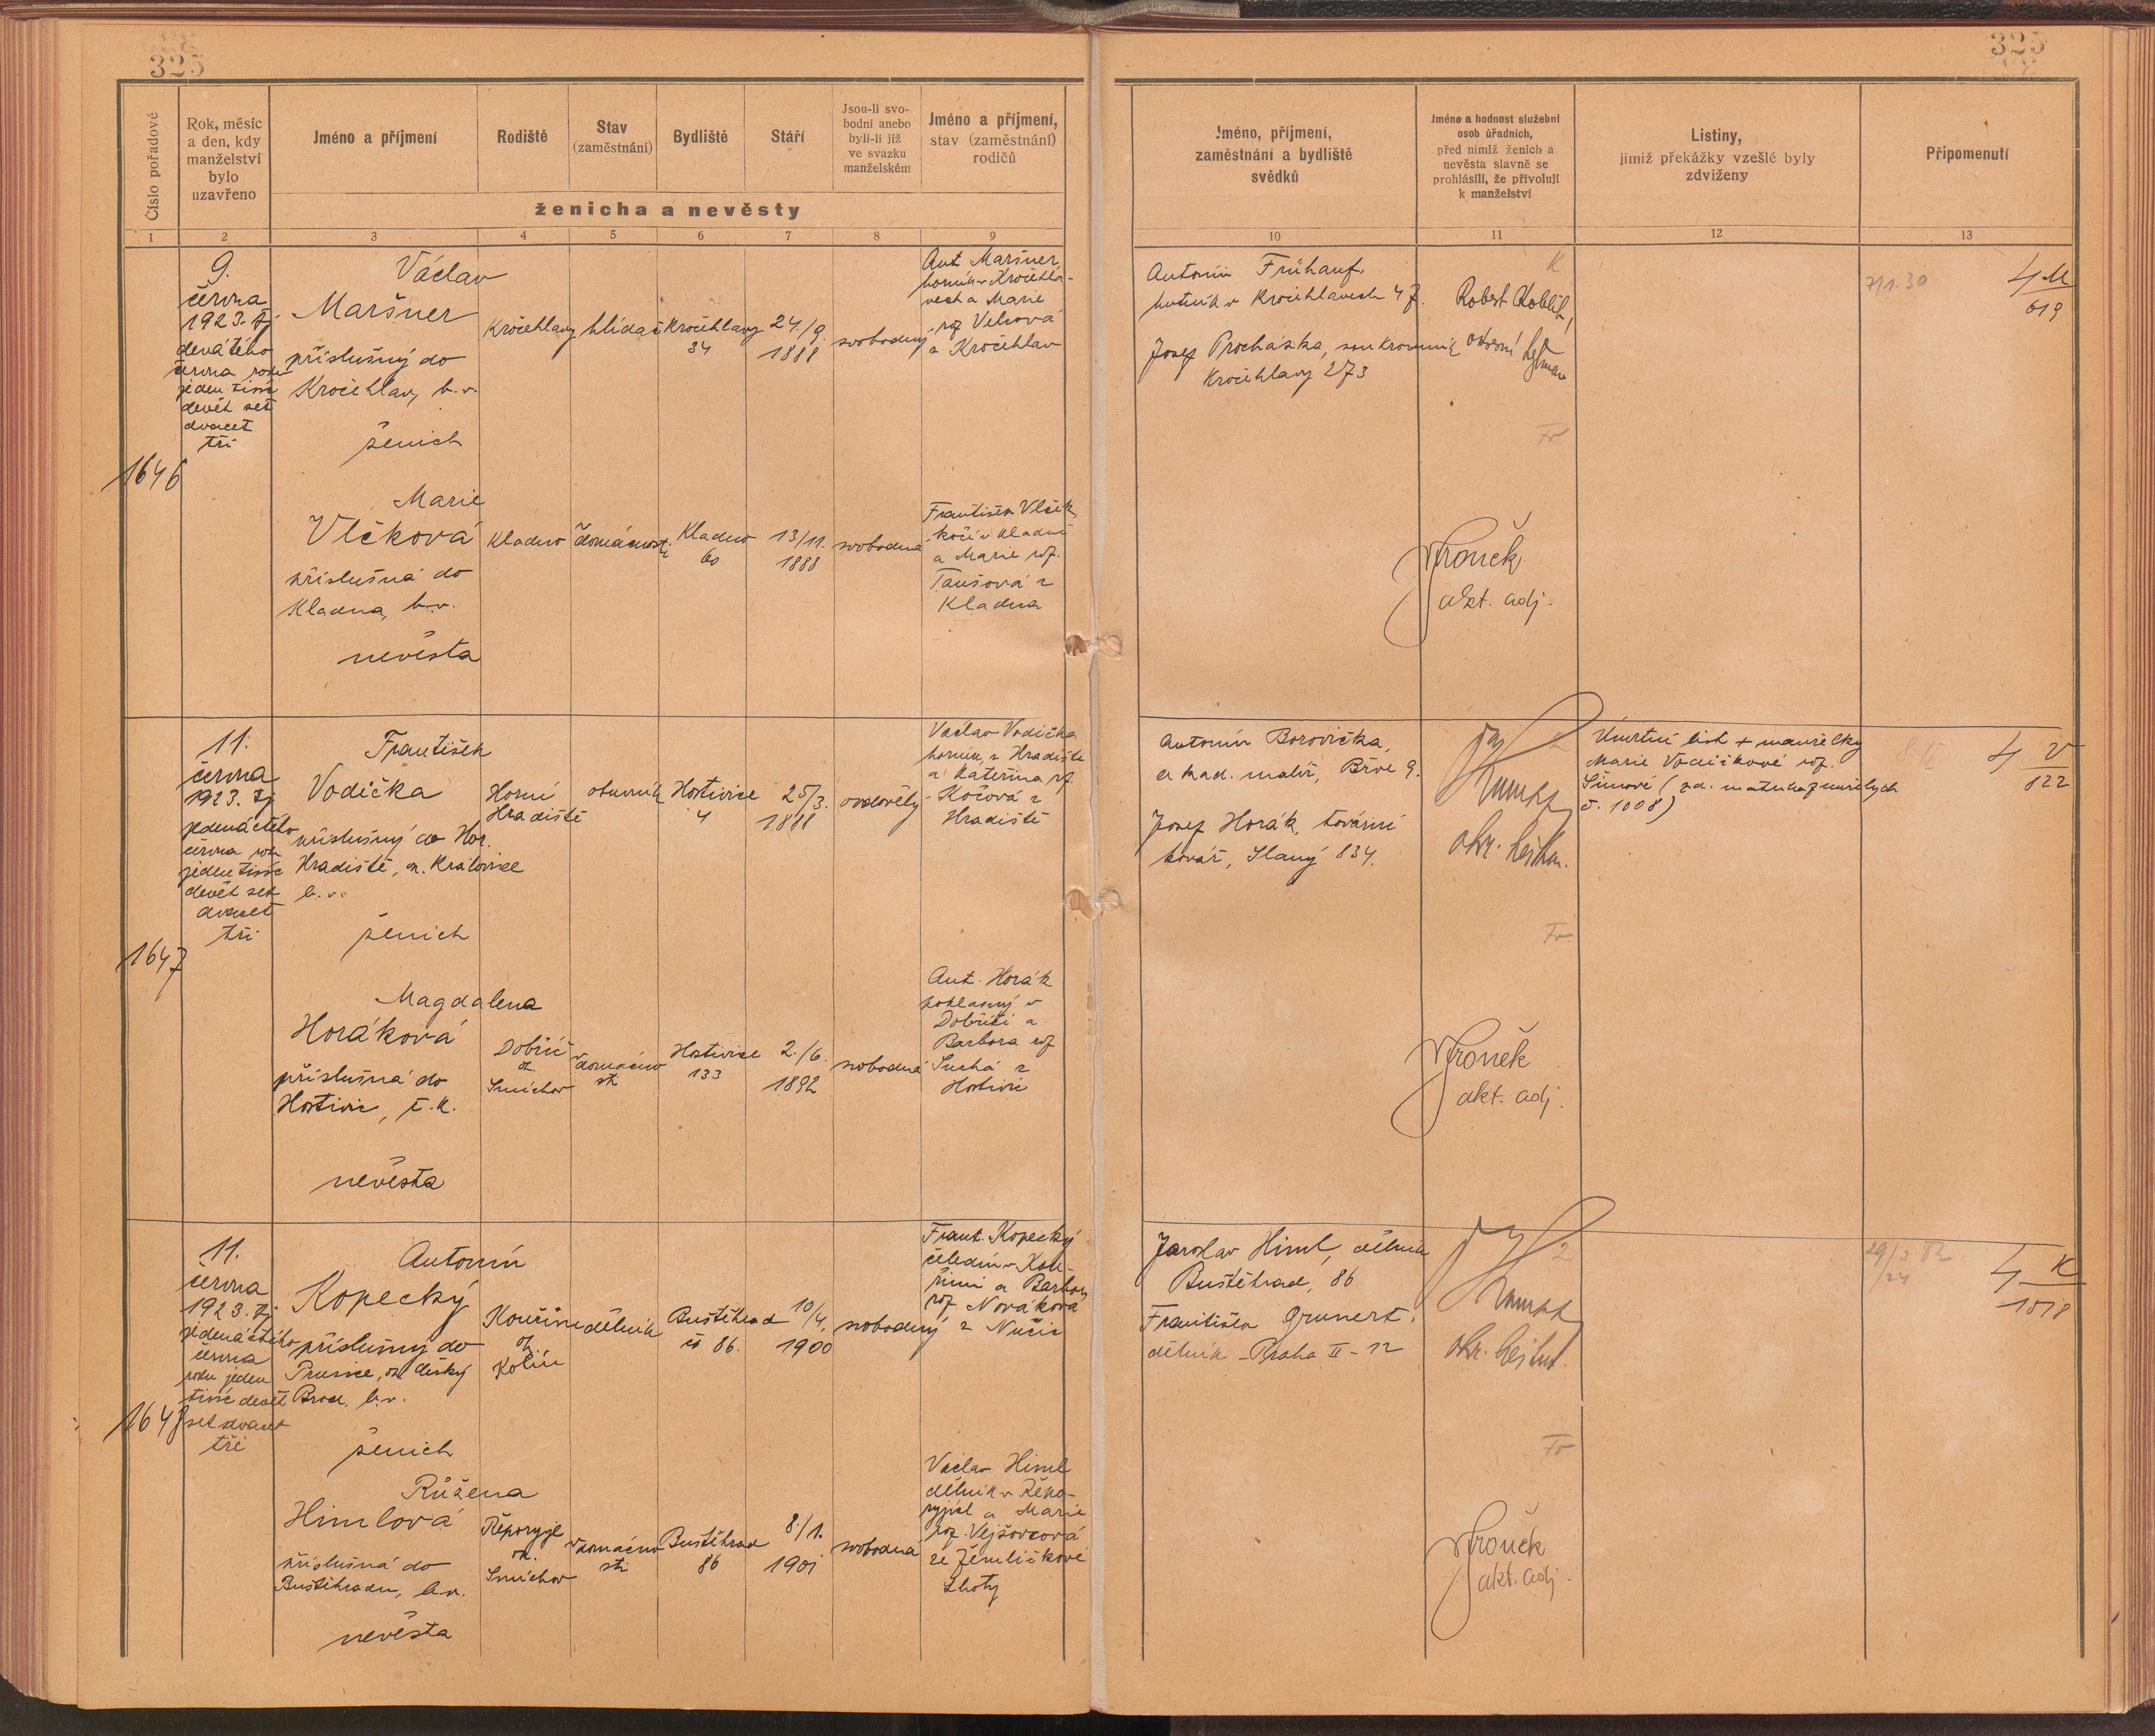 325
325
Číslo pořadové
Rok, měsíc
a den, kdy
manželství
bylo
uzavřeno
Jméno a příjmení
Rodiště
Stav
(zaměstnání)
Bydliště
Stáří
Jsou-li svo-
bodni anebo
byli-li již
ve svazku
manželském
Jméno a příjmení,
stav (zaměstnání)
rodičů
ženicha a nevěsty
Jméno, příjmení,
zaměstnání a bydliště
svědků
Jméno a hodnost služební
osob úřadních,
před nimiž ženich a
nevěsta slavně se
prohlásili, že přivolují
k manželství
Listiny,
jimiž překážky vzešlé byly
zdviženy
Připomenutí
1 2 3 4 5 6 7 8 9 10 11 12 13
1646
9.
června
1923. tj
devátého
června roku
jeden tisíc
devět set
dvacet
tři
Václav
Maršner
příslušný do
Kročehlav, b.v.
ženich
Kročehlavy
hlídač
Kročehlavy
34
24./9.
1888
svobodný
Ant. Maršner,
horník v Kročehla-
vech a Marie
roz. Velcová
z Kročehlav
Marie
Vlčková
příslušná do
Kladna, b.v.
nevěsta
Kladno
v domácnosti
Kladno
60
13/11.
1888
svobodná
František Vlček,
kočí v Kladně
a Marie roz.
Taušová z
Kladna
Antonín Frühauf,
hutník v Kročehlavech 47.
Josef Procházka, soukromník
Kročehlavy 273
K
Robert
Fr
Vronek
akt. adj.
7/1.30
4 M
619
1647
11.
června
1923. tj
jedenáctého
června roku
jeden tisíc
devět set
dvacet
tři
František
Vodička
příslušný do Hor.
Hradiště, o. Kralovice
b.v.
ženich
Horní
Hradiště
obuvník
Hostivice
4
25/3.
1888
ovdovělý
Václav Vodička
horník z Hradiště
a Kateřina rz.
Kočová z
Hradiště
Magdalena
Horáková
příslušná do
Hostivic, č.k.
nevěsta
Dobříč
o.
Smíchov
v domácno
sti
Hostivice
133
2./6.
1892
svobodná
Ant. Horák
pohlasný v
Dobříči a
Barbora roz
Suchá z
Hostivic
Antonín Borovička,
akad. malíř, Břve 9.
Josef Horák, tovární
kovář, Slaný 834.
okr. hejtm.
Fr
Vronek
akt. adj.
Úmrtní list + manželky
Marie Vodičkové roz.
Šímové (zd. matrika zemřelých
č. 1008)
4 V
122
1648
11.
června
1923. tj
jedenáctého
června
roku jeden
tisíc devět
set dvacet
tři
Antonín
Kopecký
příslušný do
Prusice, o. Český
Brod, b.v.
ženich
Kouřim
o.
Kolín
dělník
Buštěhrad
čs 86.
10/4.
1900
svobodný
Frant. Kopecký
čeledín v Kou-
řimi a Barbora
roz. Nováková
z Nučic
Růžena
Himlová
příslušná do
Buštěhradu, b.v.
nevěsta
Řeporyje
o.
Smíchov
v domácno
sti
Buštěhrad
86
8./1.
1901
svobodná
Václav Himl
dělník v Řepo-
ryjích a Marie
roz. Vejšovcová
ze Žemličkové
Lhoty
Jaroslav Himl, dělník
Buštěhrad, 86
Františka Grunert,
dělník - Praha II - 12
okr. hejtm.
Fr
Vronek
akt. adj.
4 K
1018